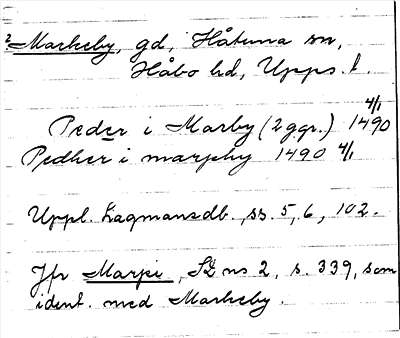 2 Markeby, gd, Håtuna sn,
Håbo hd, Upps. l.
Peder i Marby (2 ggr.) 1490 4/1
Pedher i marphy 1490 4/1
Uppl. Lagmansdb., ss. 5, 6, 102.
Jfr Marpi, SD ns 2, s. 339, som
ident. med Markeby.